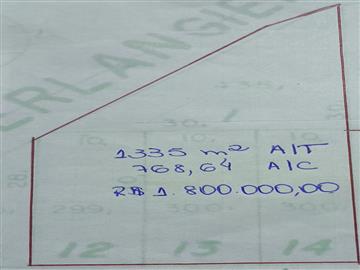 ERLANGIE
235,
30,1
10, 10, 10,
28,
1335 m² A/T
768,64 A/C
R$ 1.800.000,00
299, 300, 300
12 13 14